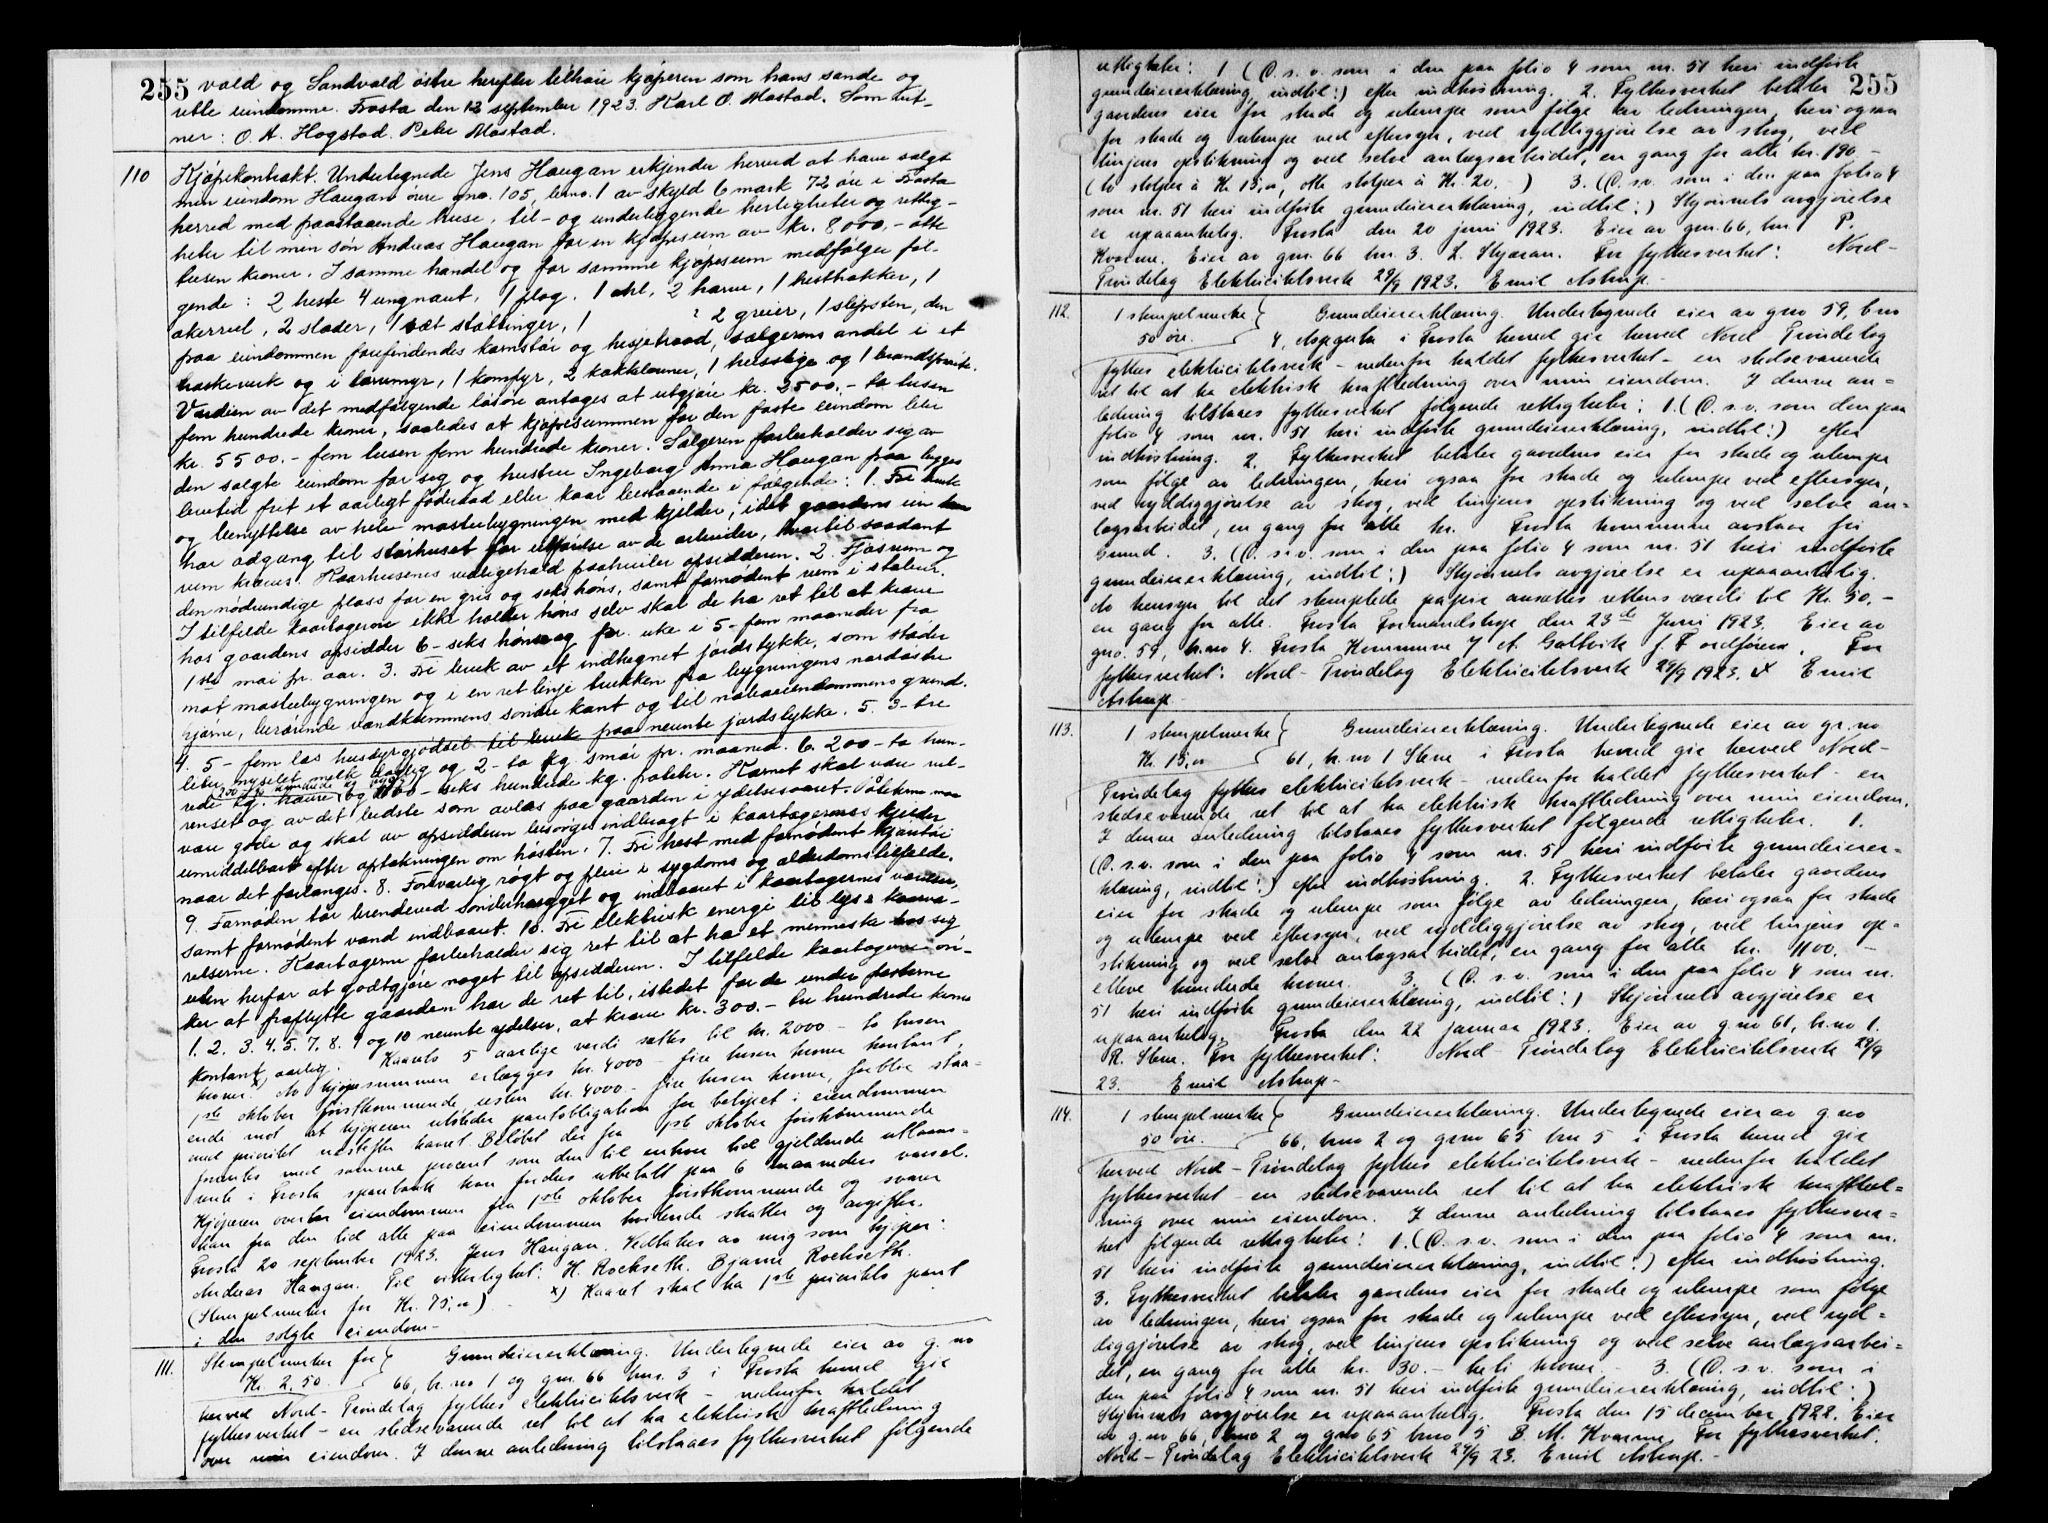 255
vald og Sandvald östre herefter tilhøre kjøperen som hans sande og
rette eiendomme. Frosta den 12 september 1923. Karl O. Mostad. Som vit-
ner: O. A. Hogstad. Peter Mostad.
110 Kjöpekontrakt. Undertegnede Jens Haugan erkjender herved at have solgt
min eiendom Haugan övre gno. 105, bno. 1 av skyld 6 mark 72 öre i Frosta
herred med paastaaende huse, til- og underliggende herligheter og rettig-
heter til min sön Andreas Haugan for en kjöpesum av kr. 8000,- otte
tusen kroner. I samme handel og for samme kjöpesum medfölger föl-
gende: 2 heste 4 ungnaut, 1 plog, 1 ahl, 2 harve, 1 hesthakker, 1
akerrul, 2 slader, 1 sæt stöttinger, 1 ? 2 greier, 1 slipsten, den
paa eiendommen forefindendes kornstör og hesjetraad, sælgerens andel i et
træskeverk og i torvmyr, 1 komfyr, 2 kakkelovner, 1 heissstige og 1 brandspröite.
Værdien av det medfölgende lösöre antages at utgjöre kr. 2500.- to tusen
fem hundrede kroner, saaledes at kjöpesummen for den faste eiendom blir
kr. 5500.- fem tusen fem hundrede kroner. Sælgeren forbeholder sig av
den solgte eiendom for sig og hustru Ingeborg Anna Haugan paa begges
levetid frit et aarligt föderaad eller kaar bestaaende i fölgende: 1. Fri bruk
og benyttelse av hele masterbygningen med kjelder, idet gaardens eier
har adgang til störhuset for utförelse av de arbeider, hvortil saadant
rum kræves. Kaarhusenes vedligehold paahviler opsidderen. 2. Fjösrum og
den nödvendige plass for en gris og seks höns, samt fornödent rum i stabur.
I tilfelde kaartagerne ikke holder höns selv skal de ha ret til at kræve
hos gaardens opsidder 6- seks hönseeg pr. uke i 5- fem maaneder fra
1ste mai pr. aar. 3. Fri bruk av et indhegnet jordstykke, som stöder
mot masterbygningen og i en ret linje trukken fra bygningens nordöstre
hjörne, berörende vandkummens söndre kant og til naboeiendommens grund.
4. 5- fem las husdyrgjödsel til bruk paa nevnte jordstykke. 5. 3- tre
liter nysilet melk daglig og 2- to kg. smör pr. maaned. 6. 200- to hun-
rede kg. havre og 600- seks hundrede kg. poteter. Kornet skal være vel-
renset og av det bedste som avles paa gaarden i ydelsesaaret. Potetene maa
være gode og skal av opsidderen besörges indbragt i kaartagernes kjelder
umiddelbart efter optakningen om hösten. 7. Fri hest med fornödent kjöretöi
naar det forlanges. 8. Forsvarlig rögt og pleie i sygdoms og alderdomstilfelde.
9. Fornöden tör brendeved sönderhugget og indbaaret i kaartagernes værelser,
samt fornödent vand indbaaret. 10. Fri elektrisk energi til lys i kaarvæ-
relserne. Kaartagerne forbeholder sig ret til at ha et menneske hos sig
uten herfor at godtgjöre noget til opsidderen. I tilfelde kaartagerne ön-
sker at fraflytte gaarden har de ret til, istedet for de under posterne
1. 2. 3. 4. 5. 7. 8. 9 og 10 nevnte ydelser, at kræve kr. 300.- tre hundrede kroner
kontant aarlig. Kaarets 5 aarlige verdi sættes til kr. 2000- to tusen
kroner. x) Av kjöpesummen erlægges kr. 4000- fire tusen kroner kontant
1ste oktober förstkommende, resten kr. 4000- fire tusen kroner, forblir staa-
ende mot at kjöperen utsteder pantobligation for belöpet i eiendommen
med prioritet næstefter kaaret. Belöbet der fra 1ste oktober förstkommende
forrentes med samme procent som den til enhver tid gjeldende utlaans-
rente i Frosta sparebank kan fordres utbetalt paa 6 maaneders varsel.
Kjöperen overtar eiendommen fra 1ste oktober förstkommende og svarer
han fra den tid alle paa eiendommen hvilende skatter og avgifter.
Frosta 20 september 1923. Jens Haugan. Vedtakes av mig som kjöper:
Andreas Haugan. Til vitterlighet: H. Rockseth. Bjarne Rockseth.
(Stempelmerker for Kr. 75,00) x) Kaaret skal ha 1ste prioritets pant
i den solgte eiendom-
111. Stempelmerker for } Grundeiererklæring. Undertegnede eier av g. no
Kr. 2,50. 66, br. no 1 og gnr. 66 bnr. 3 i Frosta herred gir
herved Nord-Tröndelag fylkes elektricitetsverk - nedenfor kaldet
fylkesverket - en stedsevarende ret til at ha elektrisk kraftledning
over min eiendom. I denne anledning tilstaaes fylkesverket fölgende
255
rettigheter: 1 (O.s.v. som i den paa folio 4 som nr. 51 heri indförte
grundeiererklæring, indtil:) efter indhöstning. 2. Fylkesverket betaler
gaardens eier for skade og ulempe som fölge av ledningen, heri ogsaa
for skade og ulempe ved eftersyn, ved ryddiggjörelse av skog, ved
linjens opstikning og ved selve anlægsarbeidet, en gang for alle kr. 190-
(to stolper à Kr. 15,00, otte stolper à Kr. 20.-) 3. (O.s.v. som i den paa folio 4
som nr. 51 heri indförte grundeiererklæring, indtil:) Skjönnets avgjörelse
er upaaankelig. Frosta den 20 juni 1923. Eier av gnr. 66, bnr. 1 P.
Kvarme. Eier av gnr. 66 bnr. 3. L. Skjæran. For fylkesverket: Nord-
Tröndelag Elektricitetsverk 29/9 1923. Emil Astrup.-
112. 1 stempelmerke } Grundeiererklæring. Undertegnede eier av gno 59, bno
50 öre. 4, i Frosta herred gir herved Nord Tröndelag
fylkes elektricitetsverk - nedenfor kaldet fylkesverket - en stedsevarende
ret til at ha elektrisk kraftledning over min eiendom. I denne an=
ledning tilstaaes fylkesverket fölgende rettigheter: 1. (O.s.v. som den paa
folio 4 som nr. 51 heri indförte grundeiererklæring, indtil:) efter
indhöstning. 2. Fylkesverket betaler gaardens eier for skade og ulempe
som fölge av ledningen, heri ogsaa for skade og ulempe ved eftersyn,
ved ryddiggjörelse av skog, ved linjens opstikning og ved selve an-
lægsarbeidet, en gang for alle kr. Frosta kommune avstaar fri
Grund. 3. (O.s.v. som i den paa folio 4 som nr. 51 heri indförte
grundeiererklæring, indtil:) Skjönnets avgjörelse er upaaankelig.
Av hensyn til det stemplede papir ansættes rettens værdi til Kr. 50.-
en gang for alle. Frosta Formandskap den 23de Juni 1923. Eier av
gno. 59, br.no 4. Frosta Kommune J. A. Galtvik f. T ordförer. For
fylkesverket: Nord-Tröndelag Elektricitetsverk 29/9 1923. Emil
Astrup.-
113. 1 stempelmerke } Grundeiererklæring. Undertegnede eier av gr. no
Kr. 15,00 61, br. no 1 Stene i Frosta herred gir herved Nord-
Tröndelag fylkes elektricitetsverk - nedenfor kaldet fylkesverket - en
stedsevarende ret til at ha elektrisk kraftledning over min eiendom.
I denne anledning tilstaaes fylkesverket fölgende rettigheter. 1.
(O.s.v. som i den paa folio 4 som nr. 51 heri indförte grundeierer-
klæring, indtil:) efter indhöstning. 2. Fylkesverket betaler gaardens
eier for skade og ulempe som fölge av ledningen, heri ogsaa for skade
og ulempe ved eftersyn, ved ryddiggjörelse av skog, ved linjens op-
stikning og ved selve anlægsarbeidet, en gang for alle kr. 1100.-
elleve hundrede kroner. 3. (O.s.v. som i den paa folio 4 som nr.
51 heri indförte grundeiererklæring, indtil:) Skjönnets avgjörelse er
upaaankelig. Frosta den 22 januar 1923. Eier av g.no 61, br.no 1.
R. Stene. For fylkesverket: Nord-Tröndelag Elektricitetsverk 29/9
23. Emil Astrup-
114. 1 stempelmerke } Grundeiererklæring. Undertegnede eier av g. no
50 öre. 66, bno 2 og gno 65 bno 5 i Frosta herred gir
herved Nord-Tröndelag fylkes elektricitetsverk - nedenfor kaldet
fylkesverket - en stedsevarende ret til at ha elektrisk kraftled=
ning over min eiendom. I denne anledning tilstaaes fylkesver-
ket fölgende rettigheter: 1. (O.s.v. som i den paa folio 4 som nr.
51 heri indförte grundeiererklæring, indtil:) efter indhöstning.
3. Fylkesverket betaler gaardens eier for skade og ulempe som fölge
av ledningen, heri ogsaa for skade og ulempe ved eftersyn, ved ryd=
diggjörelse av skog, ved linjens opstikning og ved selve anlægsarbei-
det, en gang for alle kr. 30.- treti kroner. 3. (O.s.v. som i
den paa folio 4 som nr. 51 heri indförte grundeiererklæring, indtil:)
Skjönnets avgjörelse er upaaankelig. Frosta den 15 december 1922. Eier
av g.no 66, bno 2 og gno 65 bno 5 B. M. Kvarme. For fylkesverket:
Nord-Tröndelag Elektricitetsverk 29/9 23. Emil Astrup.-